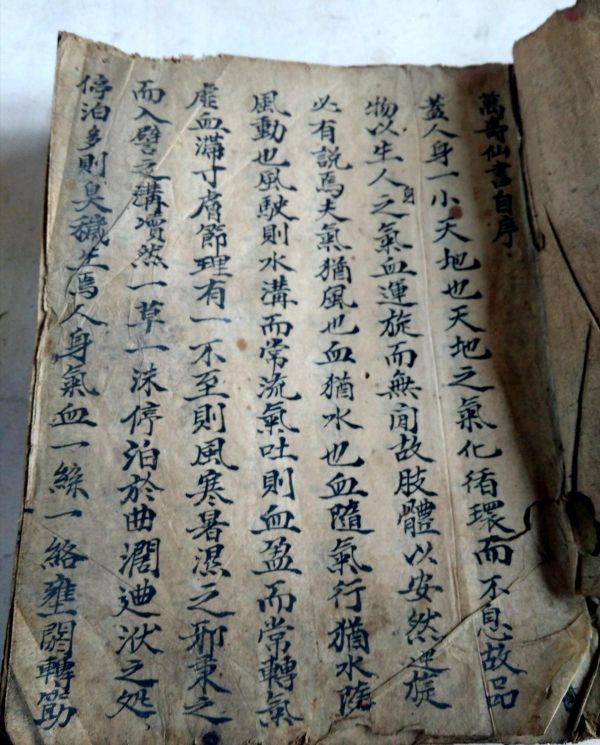 萬壽仙書自序
蓋人身一小天地也天地之氣化循環而不息故品
物以生人身之氣血運旋而無間故肢體以安然運旋
必有說焉夫氣猶風也血猶水也血隨氣行猶水隨
風動也風駛則水溝而常流氣吐則血盈而常轉氣
虛血滿寸膚節理有一不至則風寒暑濕之邪乘之
而入譬之溝瀆然一草一沫停泊於曲澗迪洑之処
停泊多則臭穢生焉人身氣血一絲一絡壅閼轉